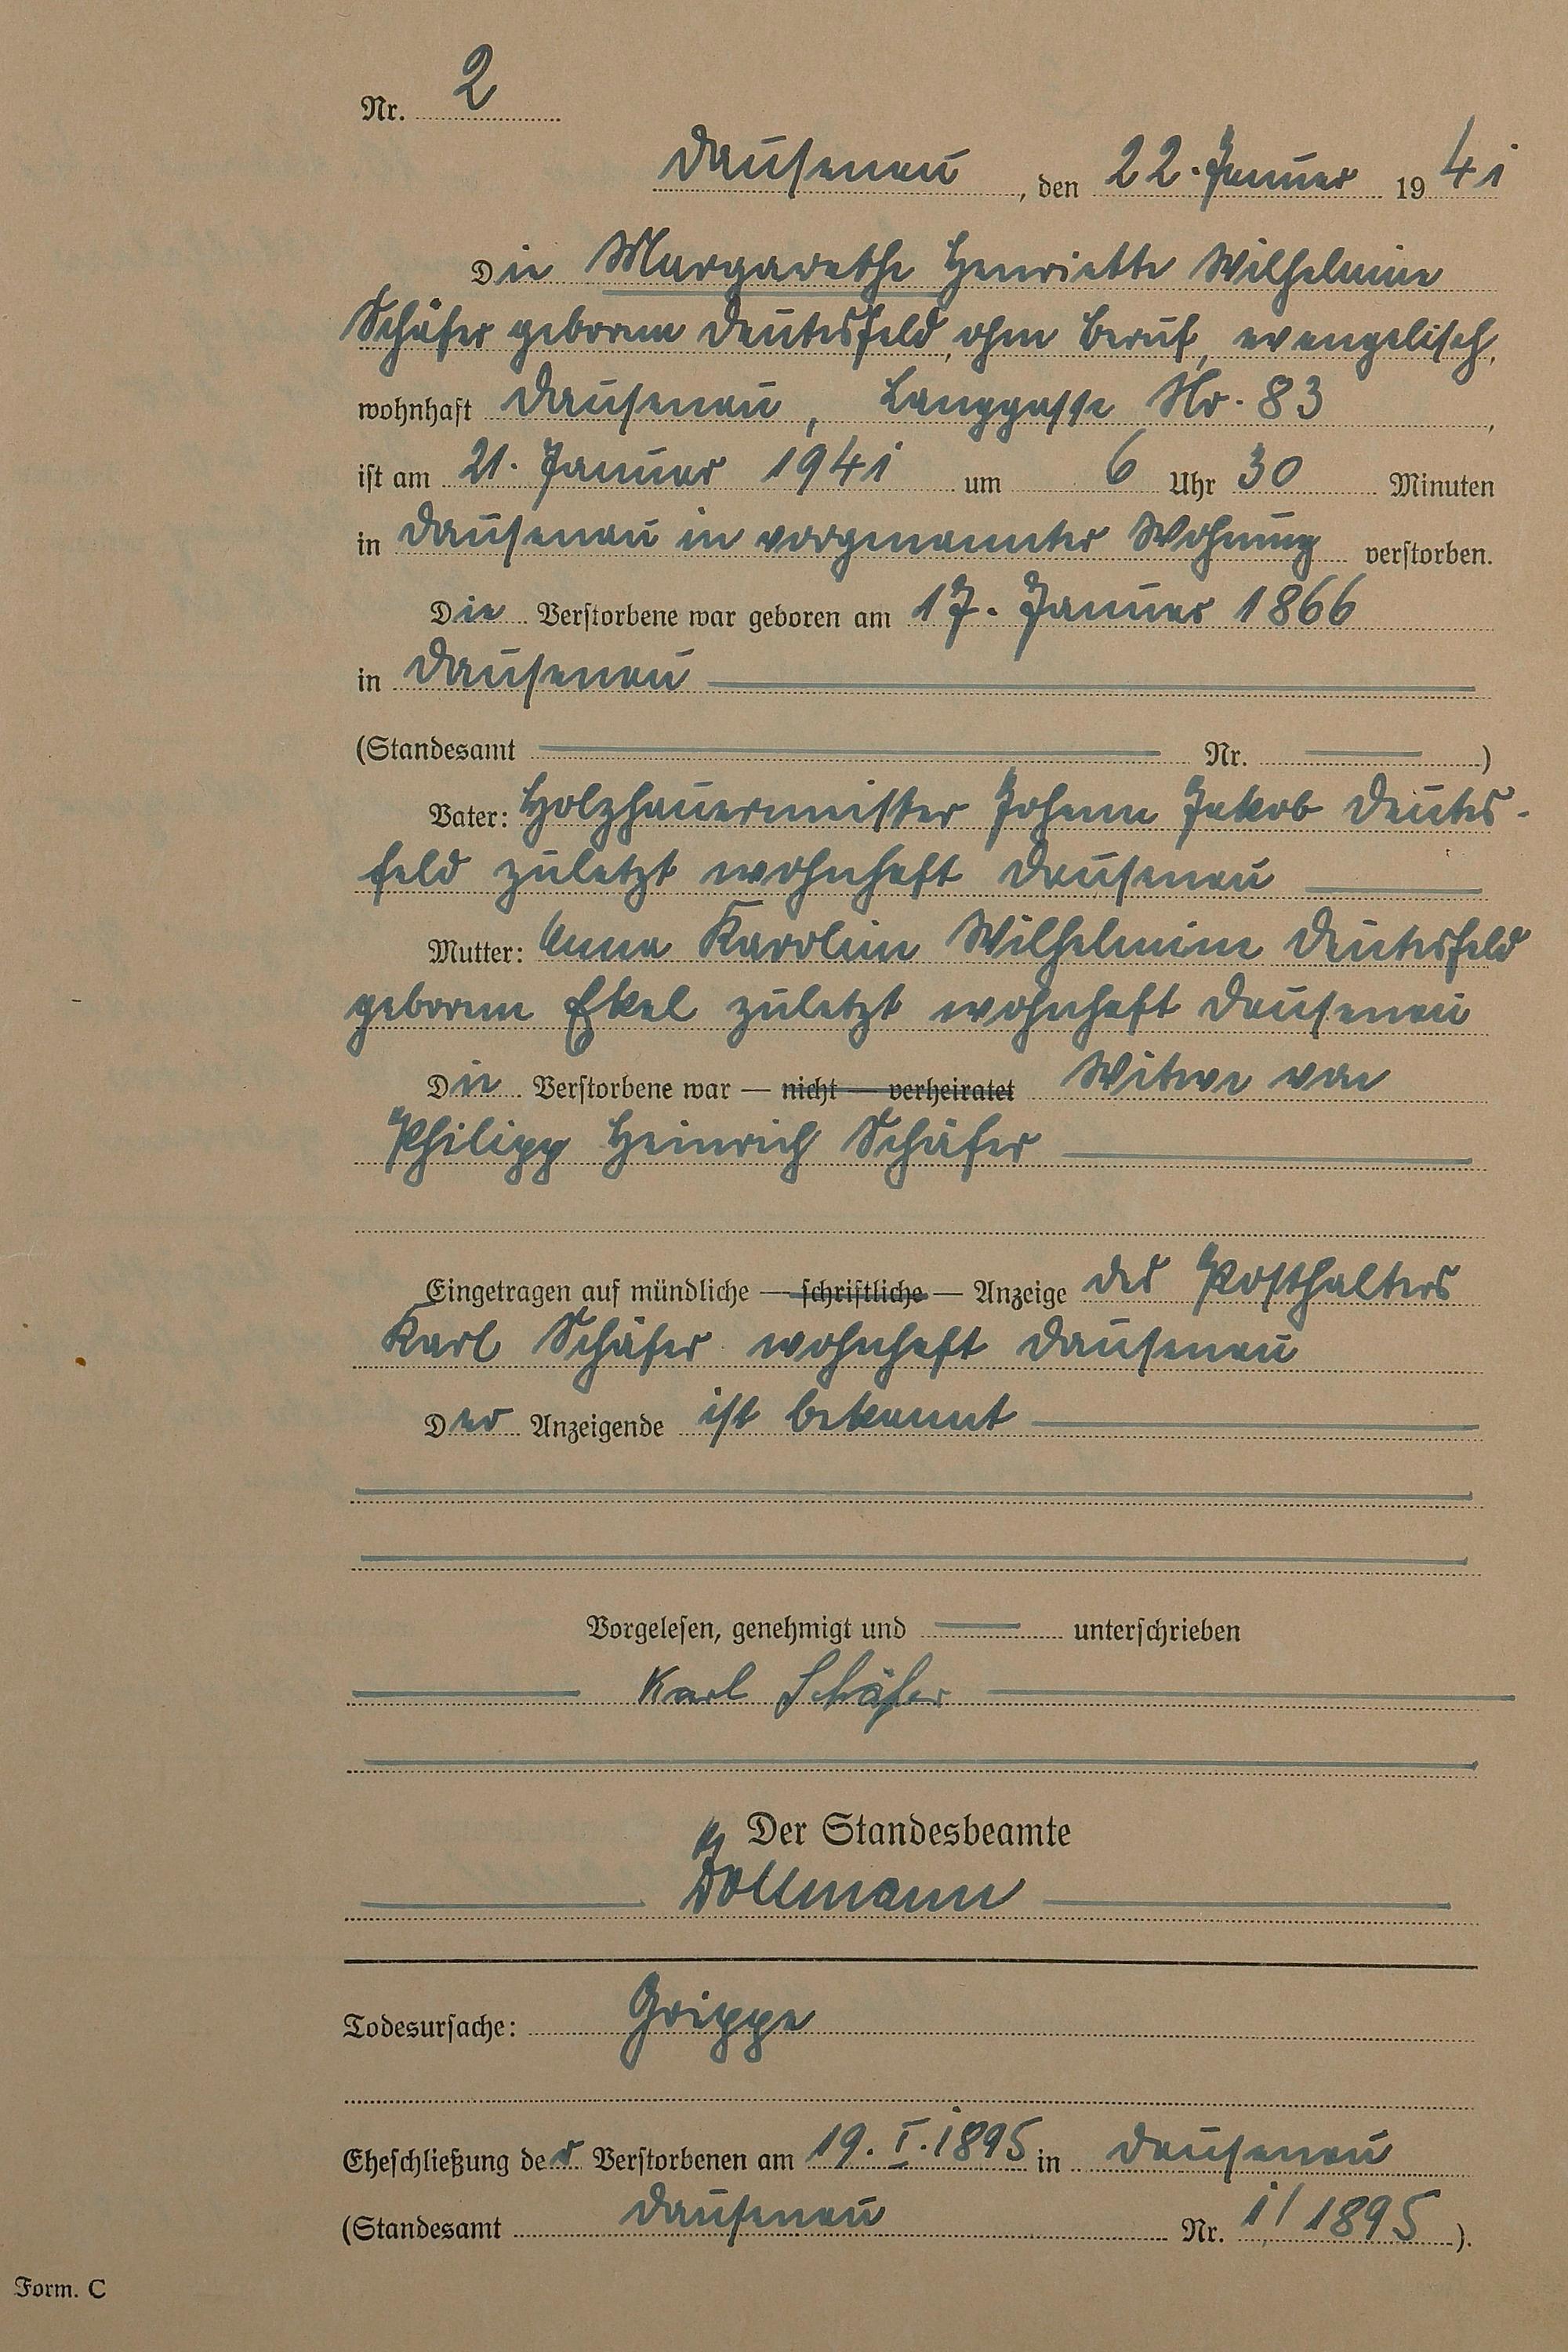 Nr. 2
Dausenau, den 22. Januar 1941
Die Margarethe Henriette Wilhelmine
Schäfer geborene Deutesfeld, ohne Beruf, evangelisch,
wohnhaft Dausenau, Langgasse Nr. 83,
ist am 21. Januar 1941 um 6 Uhr 30 Minuten
in Dausenau in vorgenannter Wohnung verstorben.
Die Verstorbene war geboren am 17. Januar 1866
in Dausenau
(Standesamt Nr. )
Vater: Holzhauermeister Johann Jakob Deutes-
feld zuletzt wohnhaft Dausenau
Mutter: Anna Karoline Wilhelmine Deutesfeld
geborene Ekel zuletzt wohnhaft Dausenau
Die Verstorbene war — nicht — verheiratet Witwe von
Philipp Heinrich Schäfer
Eingetragen auf mündliche — schriftliche — Anzeige des Posthalters
Karl Schäfer wohnhaft Dausenau
Der Anzeigende ist bekannt
Vorgelesen, genehmigt und unterschrieben
Karl Schäfer
Der Standesbeamte
Döllmann
Todesursache: Grippe
Eheschließung der Verstorbenen am 19. I. 1895 in Dausenau
(Standesamt Dausenau Nr. 1/1895).
Form. C